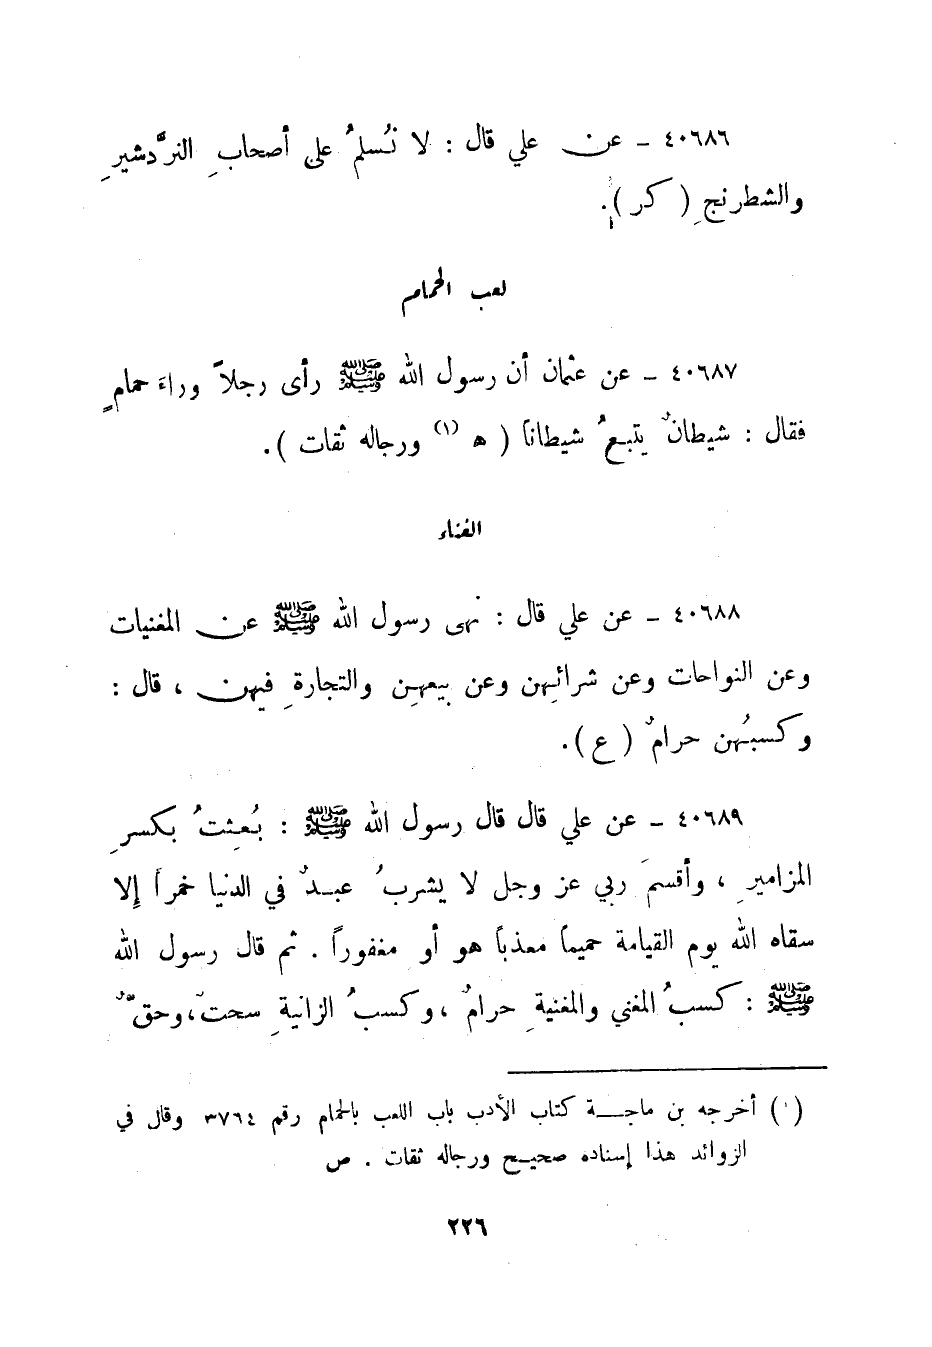 ٤٠٦٨٦ ـ عن علي قال : لا نُسلمُ على أصحابِ النرَّدشيرِ
والشطرنجِ ( كر ) .
لعب الحمام
٤٠٦٨٧ ـ عن عثمان أن رسول الله ﷺ رأى رجلاً وراءَ حمامٍ
فقال : شيطانٌ يتبعُ شيطاناً ( ه (١) ورجاله ثقات ) .
الغناء
٤٠٦٨٨ ـ عن علي قال : نهى رسول الله ﷺ عن المغنيات
وعن النواحات وعن شرائهن وعن بيعهن والتجارةِ فيهن ، قال :
وكسبُهن حرامٌ ( ع ) .
٤٠٦٨٩ ـ عن علي قال قال رسول الله ﷺ : بُعِثتُ بكسرِ
المزاميرِ ، وأقسمَ ربي عز وجل لا يشربُ عبدٌ في الدنيا خمراً إلا
سقاه الله يوم القيامة حميماً معذباً هو أو مغفوراً . ثم قال رسول الله
ﷺ : كسبُ المغني والمغنيةِ حرامٌ ، وكسبُ الزانيةِ سحتٌ ، وحقٌّ
(١) أخرجه بن ماجة كتاب الأدب باب اللعب بالحمام رقم ٣٧٦٤ وقال في
الزوائد هذا إسناده صحيح ورجاله ثقات . ص
٢٢٦